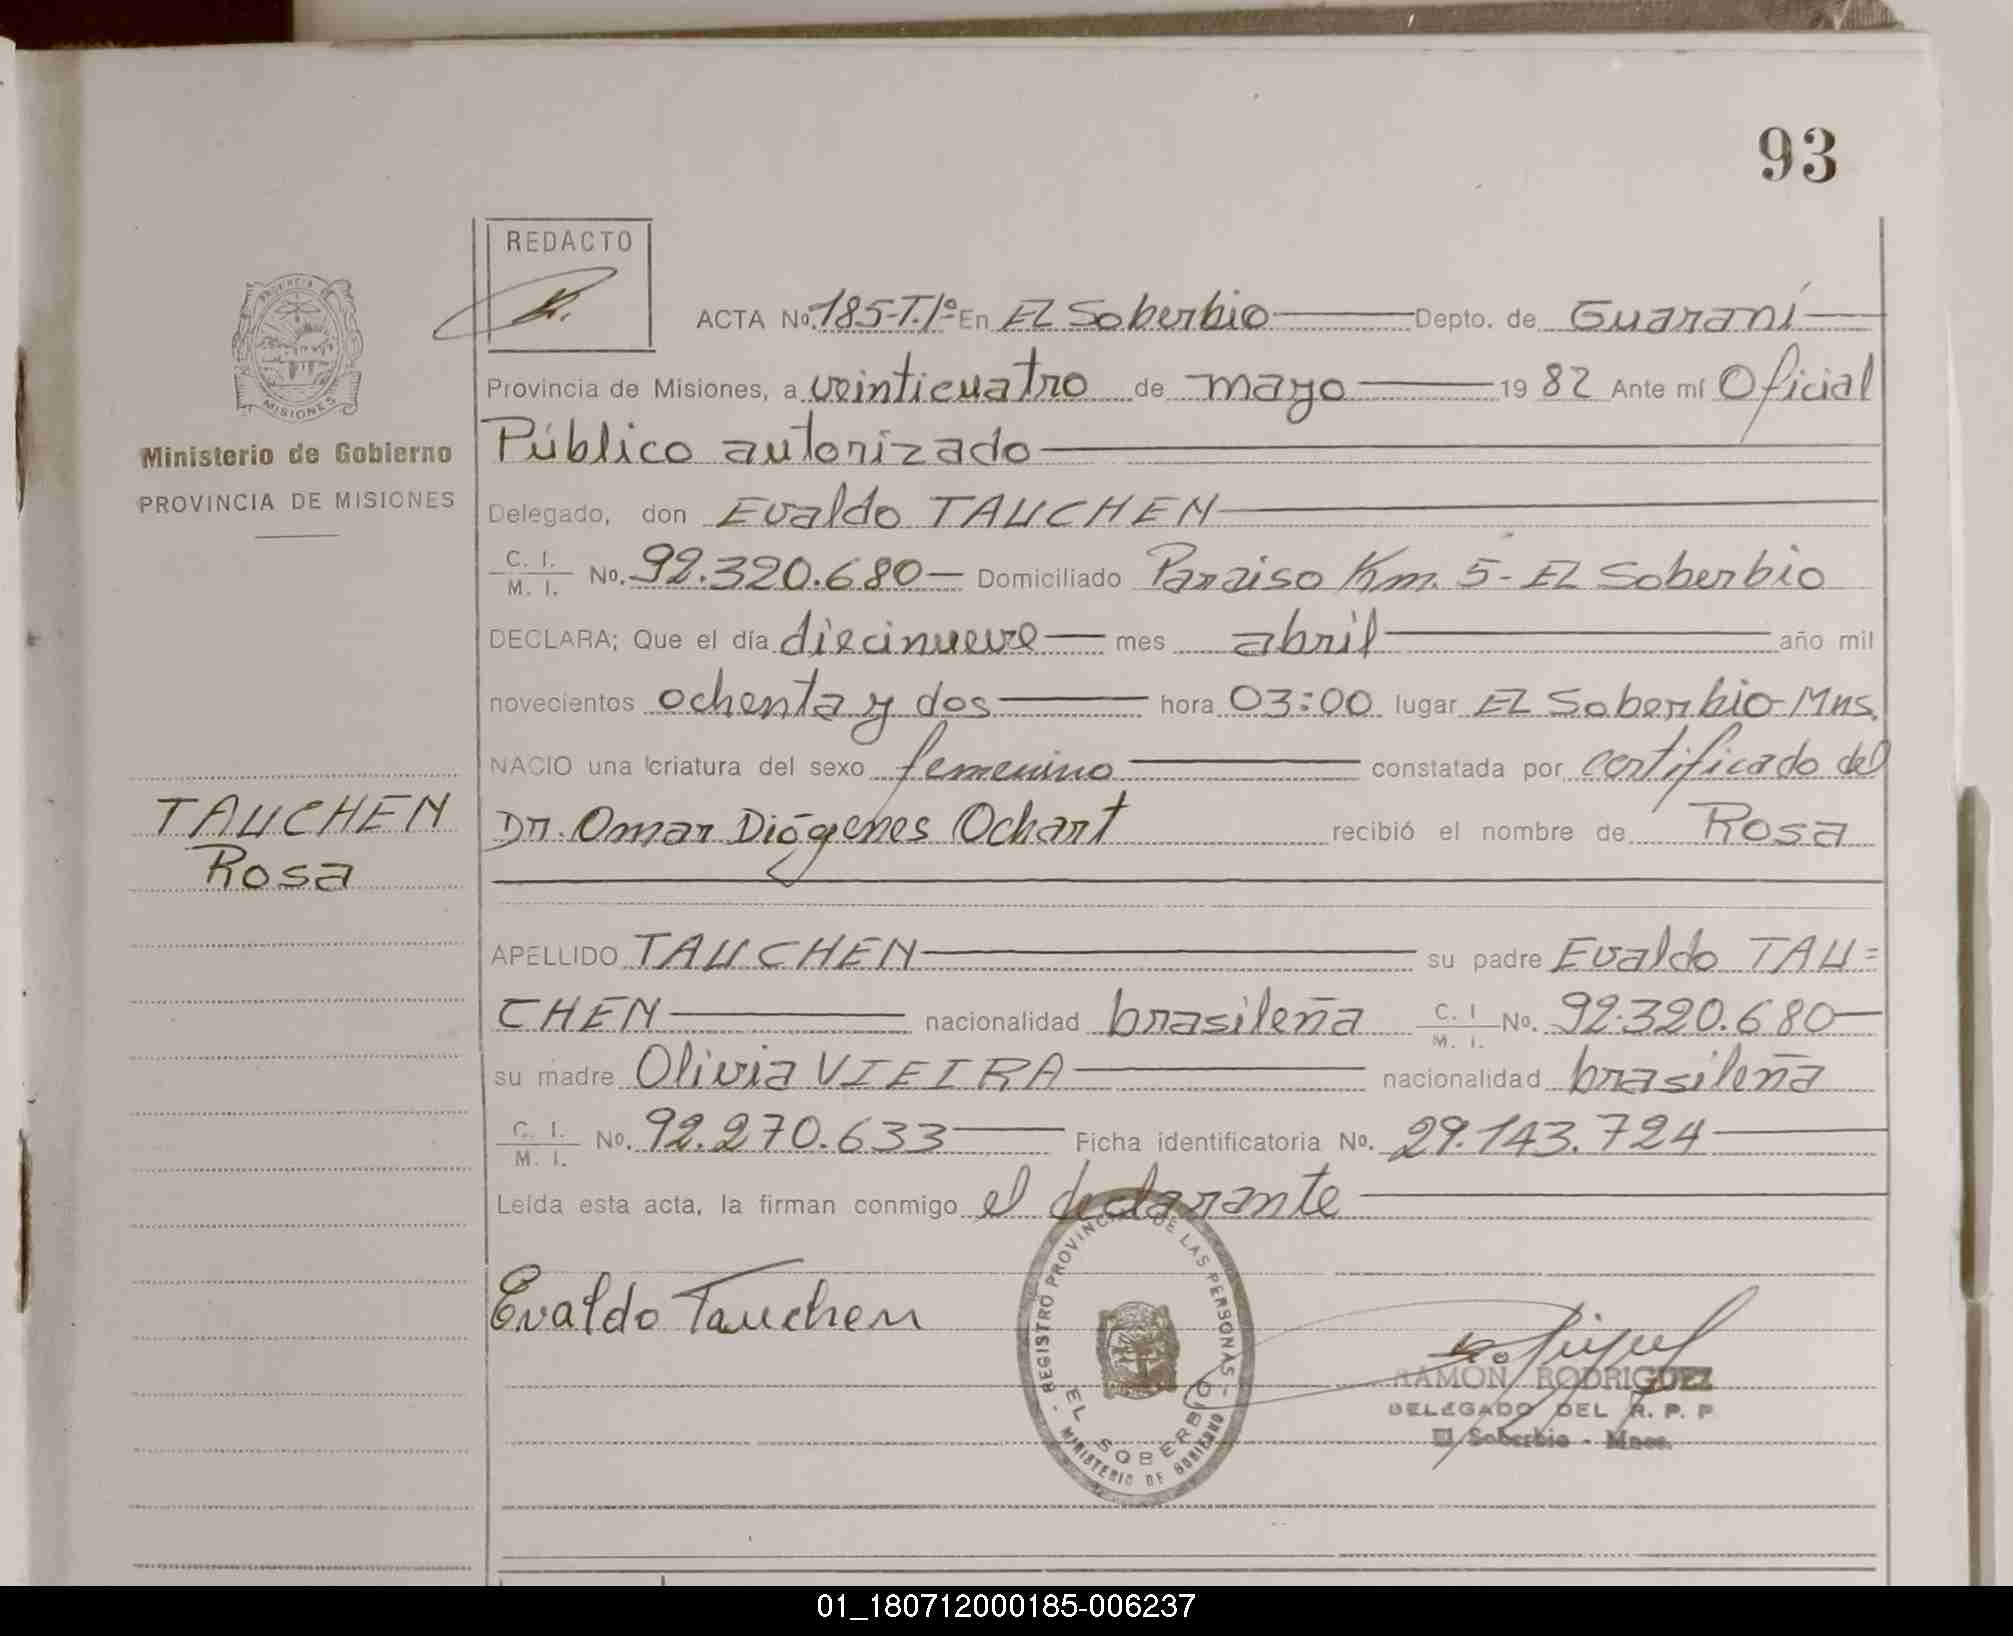 93
REDACTO
ACTA No. 185-T.Iº En El Soberbio Depto. de Guaraní
Provincia de Misiones, a veinticuatro de mayo 19 82 Ante mí Oficial
Público autorizado
Ministerio de Gobierno
PROVINCIA DE MISIONES
MISIONES
Delegado, don Evaldo TAUCHEN
C. I. / M. I. No. 92.320.680 Domiciliado Paraiso Km. 5 - El Soberbio
DECLARA; Que el día diecinueve mes abril año mil
novecientos ochenta y dos hora 03:00 lugar El Soberbio-Mns.
NACIO una criatura del sexo femenino constatada por certificado del
Dr. Omar Diógenes Ochart recibió el nombre de Rosa
TAUCHEN
Rosa
APELLIDO TAUCHEN su padre Evaldo TAU=
CHEN nacionalidad brasileña C. I / M. I. No. 92.320.680
su madre Olivia VIEIRA nacionalidad brasileña
C. I. / M. I. No. 92.270.633 Ficha identificatoria No. 29.143.724
Leída esta acta, la firman conmigo el declarante
Evaldo Tauchen
REGISTRO PROVINCIAL DE LAS PERSONAS
EL SOBERBIO
MINISTERIO DE GOBIERNO
RAMON RODRIGUEZ
DELEGADO DEL R. P. P
El Soberbio - Mnes.
01_180712000185-006237